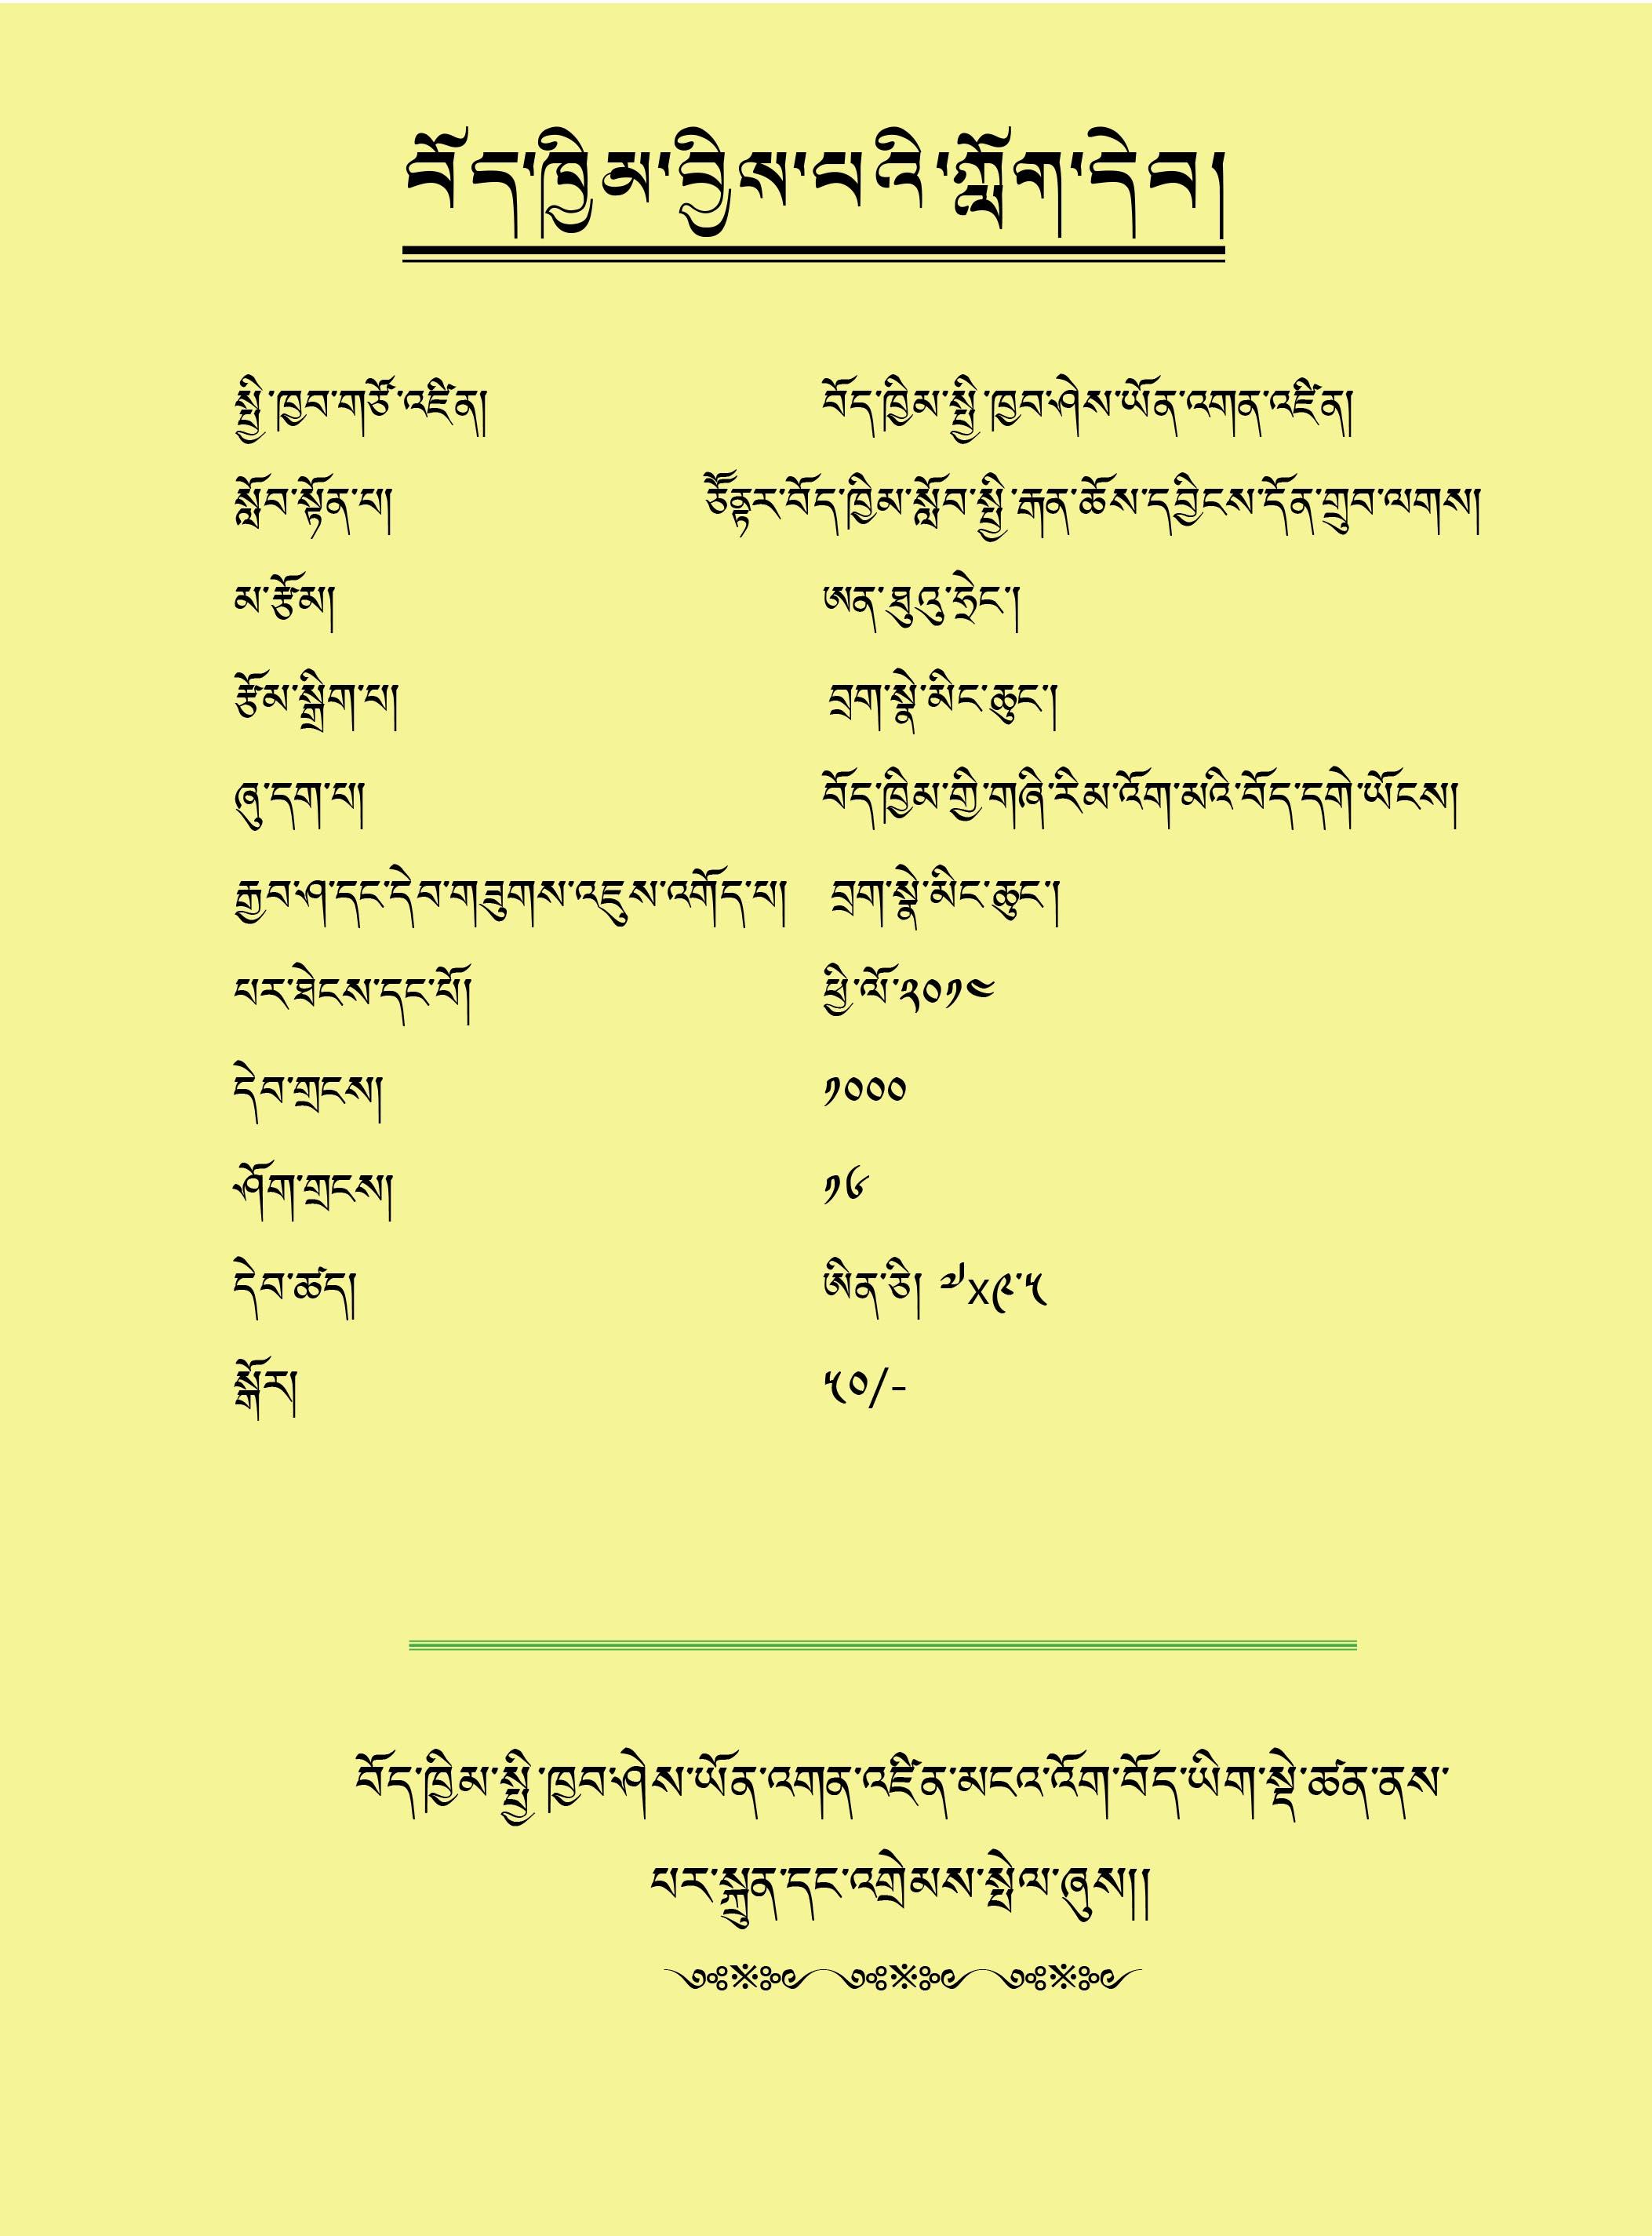 བོད་ཁྱིམ་བྱིས་པའི་ཀློག་དེབ།
སྤྱི་ཁྱབ་གཙོ་འཛིན། བོད་ཁྱིམ་སྤྱི་ཁྱབ་ཤེས་ཡོན་འགན་འཛིན།
སློབ་སྟོན་པ། ཅོོནྟར་བོད་ཁྱིམ་སློབ་སྤྱི་རྒན་ཆོས་དབྱིངས་དོན་གྲུབ་ལགས།
མ་རྩོམ། ཨན་ཐུའུ་ཧྲེང་།
རྩོམ་སྒྲིག་པ། བྲག་སྣེ་མིང་ཆུང་།
ཞུ་དག་པ། བོད་ཁྱིམ་གྱི་གཞི་རིམ་འོག་མའི་བོད་དགེ་ཡོངས།
རྒྱབ་ཤ་དང་དེབ་གཟུགས་འཇུས་འགོད་པ། བྲག་སྣེ་མིང་ཆུང་།
པར་ཐེངས་དང་པོ། ཕྱི་ལོ་༢༠༡༤
དེབ་གྲངས། ༡༠༠༠
ཤོག་གྲངས། ༡༦
དེབ་ཚད། ཨིན་ཅི། ༧x༩་༥
སྒོར། ༥༠/-
བོད་ཁྱིམ་སྤྱི་ཁྱབ་ཤེས་ཡོན་འགན་འཛིན་མངའ་འོག་བོད་ཡིག་སྡེ་ཚན་ནས་
པར་སྐྲུན་དང་འགྲེམས་སྤེལ་ཞུས།།